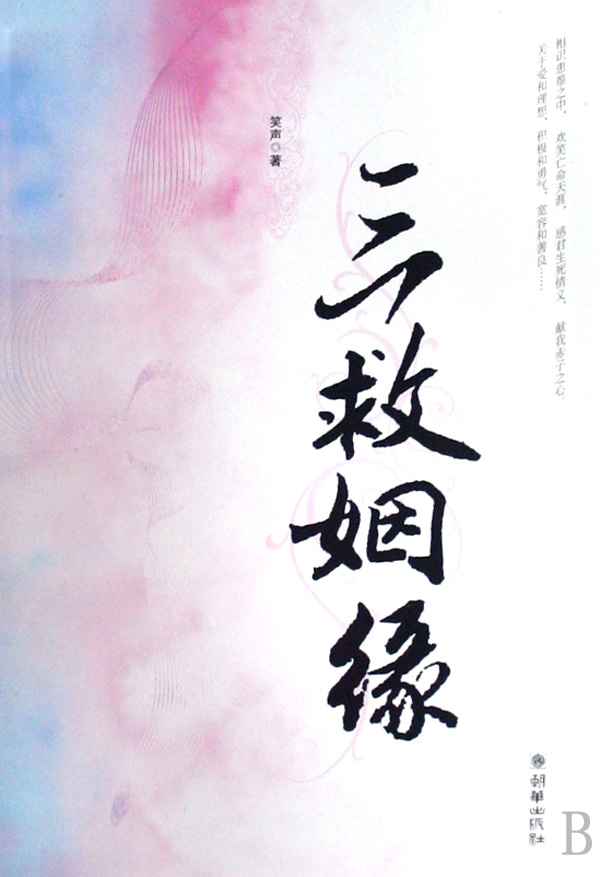 相识患难之中， 欢笑亡命天涯， 感君生死情义， 献我赤子之心
关于爱和理想，积极和勇气，宽容和善良……
笑声◎著
三救姻缘
朝华出版社
B